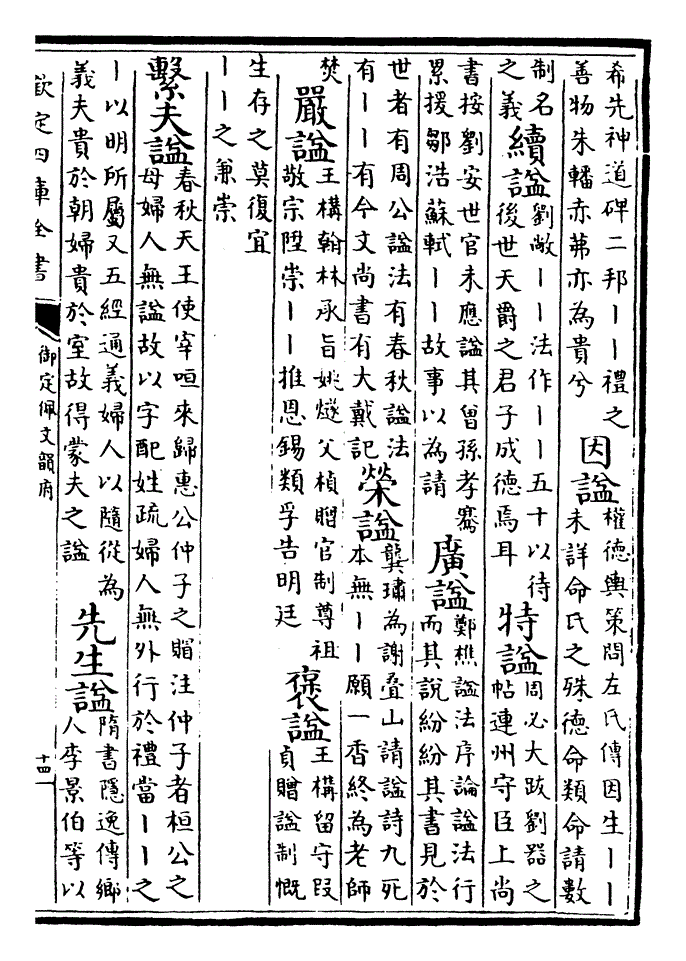 希先神道碑二邦丨丨禮之
善物朱轓赤茀亦為貴兮
因諡
權德輿策問左氏傳因生丨丨
未詳命氏之殊德命類命請數
制名
之義
續諡
劉敞丨丨法作丨丨五十以待
後世天爵之君子成德焉耳
特諡
周必大跋劉器之
帖連州守臣上尚
書按劉安世官未應諡其曾孫孝騫
累援鄒浩蘇軾丨丨故事以為請
廣諡
鄭樵諡法序論諡法行
而其說紛紛其書見於
世者有周公諡法有春秋諡法
有丨丨有今文尚書有大戴記
榮諡
龔璛為謝叠山請諡詩九死
本無丨丨願一香終為老師
焚
嚴諡
王構翰林承旨姚燧父楨贈官制尊祖
敬宗陞崇丨丨推恩錫類孚告明廷
褒諡
王構留守段
貞贈諡制慨
生存之莫復宜
丨丨之兼崇
繫夫諡
春秋天王使宰咺來歸惠公仲子之賵注仲子者桓公之
母婦人無諡故以字配姓疏婦人無外行於禮當丨丨之
丨以明所屬又五經通義婦人以隨從為
義夫貴於朝婦貴於室故得蒙夫之諡
先生諡
隋書隱逸傳鄉
人李景伯等以
欽定四庫全書
御定佩文韻府
十四